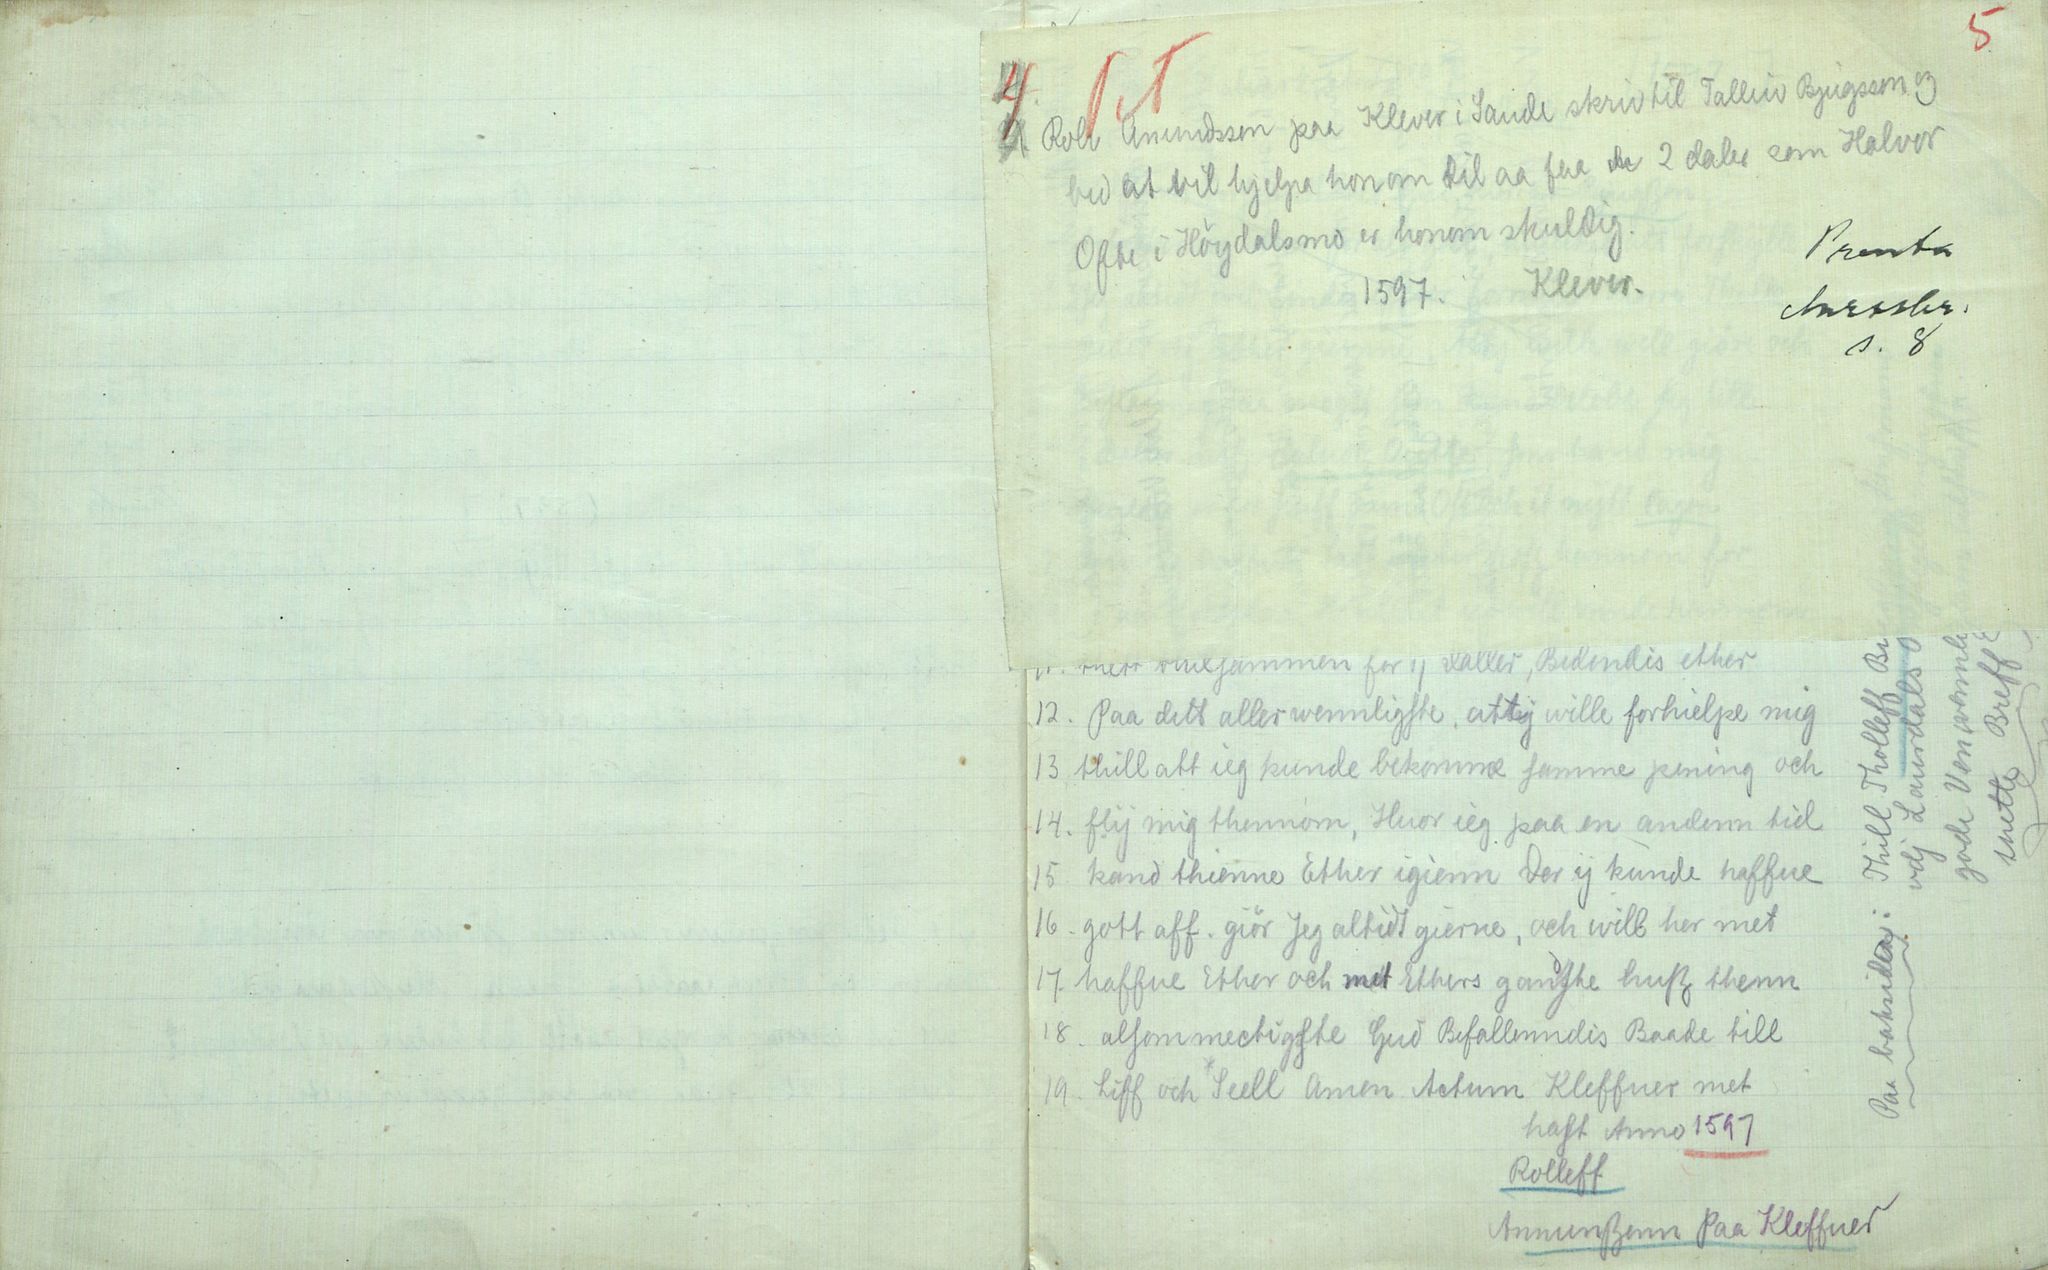 5
4.
Rolv Amundsson paa Klever i Sande skriv til Talleiv Bjugsson og
bed at vil hjelpa honom til aa faa de 2 daler som Halvor
Ofte i Høydalsmo er honom skuldig.
1597. Klever.
Prenta
Aarsskr.
s. 8
for ij daller, Bedendis ether
12. Paa dett allerwennligste, att ij wille forhielpe mig
13 thill att ieg kunde bekomme samme pening och
14. flij mig thennom, Huor ieg paa en andenn tid
15 kand thienne Ether igienn Der ij kunde haffue
16. gott aff. giör Jeg altidt gierne, och will her met
17 haffue Ether och met Ethers gandste huß thenn
18. alsommectigste Gud Befallenndis Baade till
19. Liff och Seell Amen Actum Kleffuer met
hast Anno 1597
Rolleff
Amunßenn Paa Kleffuer
Paa baksida: Thill Tholleff
vdj Laurdals
gode Ven
thette Breff